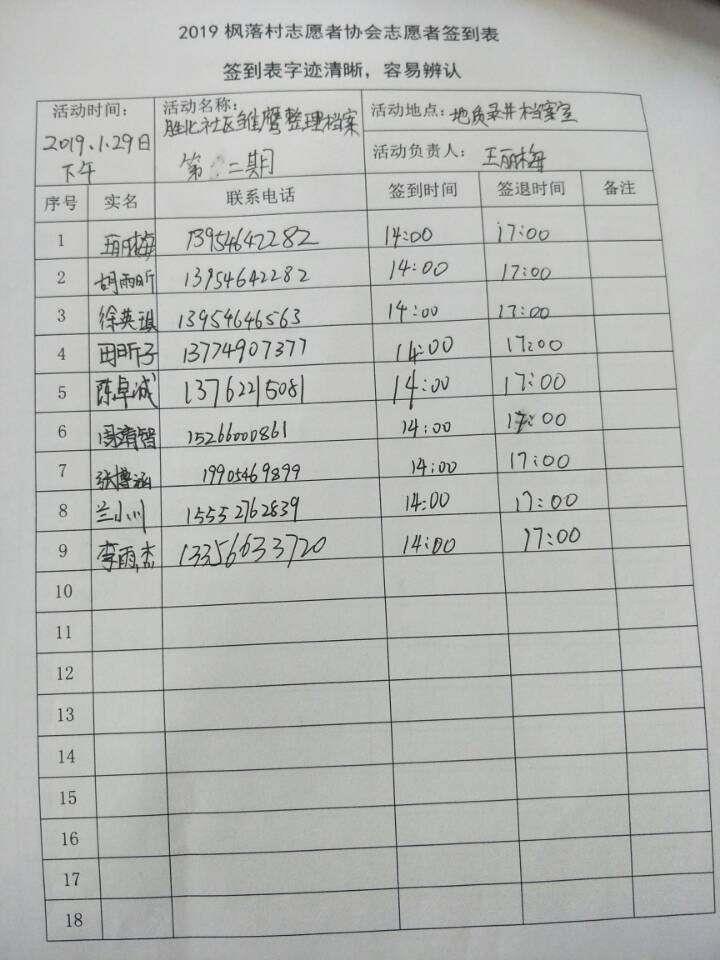 2019 枫落村志愿者协会志愿者签到表
签到表字迹清晰，容易辨认
活动时间： 2019.1.29日 下午
活动名称： 胜北社区雏鹰整理档案 第二期
活动地点： 地质录井档案室
活动负责人： 王丽梅
序号 实名 联系电话 签到时间 签退时间 备注
1 王丽梅 13954642282 14:00 17:00
2 胡雨昕 13954642282 14:00 17:00
3 徐英琪 13954646563 14:00 17:00
4 田昕子 13774907377 14:00 17:00
5 陈卓诚 13762215081 14:00 17:00
6 周清智 15266000861 14:00 17:00
7 张博涵 19905469899 14:00 17:00
8 兰小川 15552762839 14:00 17:00
9 李雨杰 13356633720 14:00 17:00
10
11
12
13
14
15
16
17
18